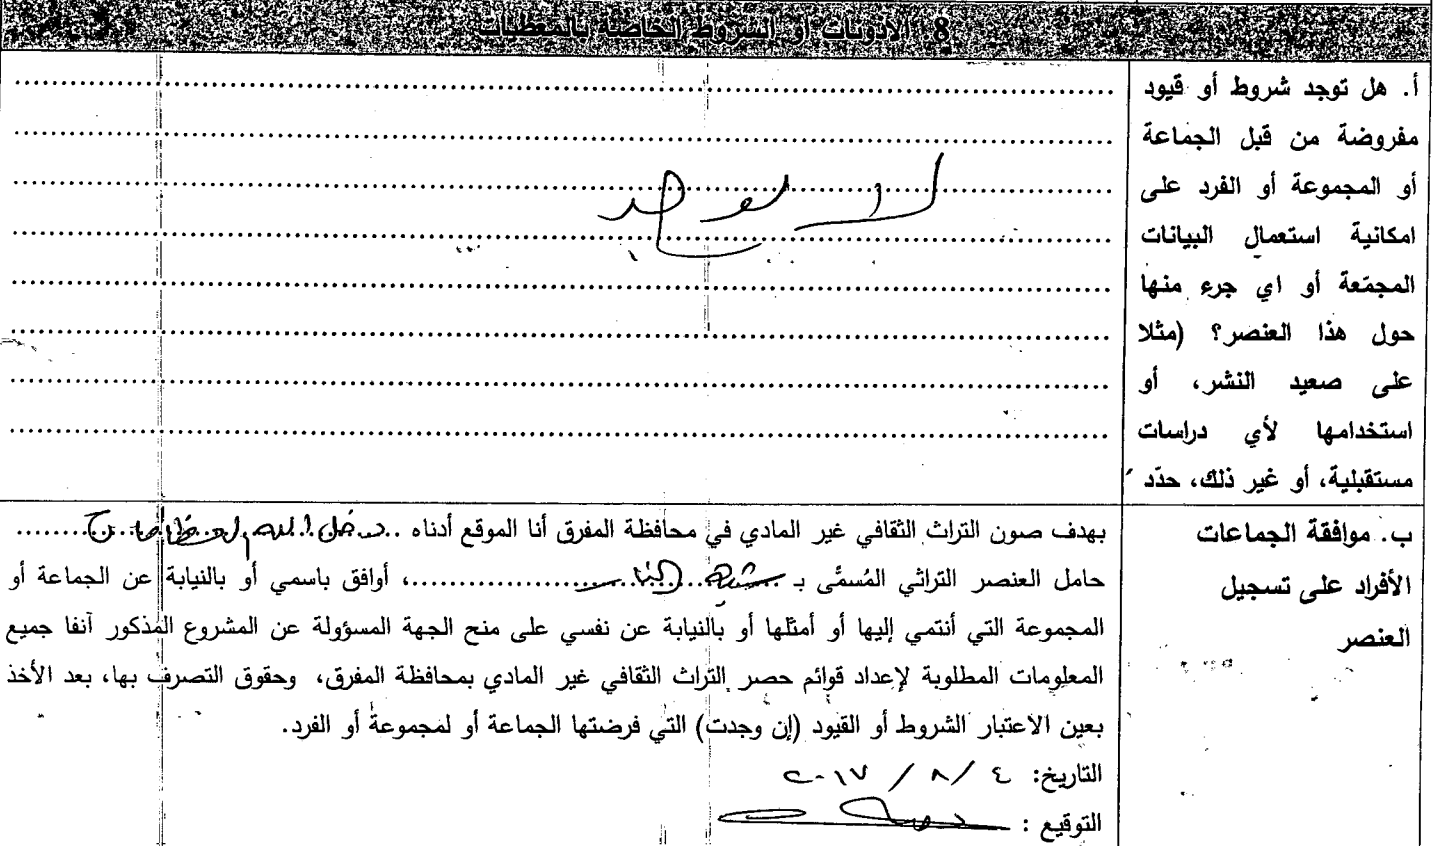 8. الأذونات أو الشروط الخاصة بالمعطيات
أ. هل توجد شروط أو قيود
مفروضة من قبل الجماعة
أو المجموعة أو الفرد على
امكانية استعمال البيانات
المجمّعة أو اي جرء منها
حول هذا العنصر؟ (مثلا
على صعيد النشر، أو
استخدامها لأي دراسات
مستقبلية، أو غير ذلك، حدّد
لا يوجد
ب. موافقة الجماعات
الأفراد على تسجيل
العنصر
بهدف صون التراث الثقافي غير المادي في محافظة المفرق أنا الموقع أدناه ..دخل الله
حامل العنصر التراثي المُسمَّى بـ ......، أوافق باسمي أو بالنيابة عن الجماعة أو
المجموعة التي أنتمي إليها أو أمثلها أو بالنيابة عن نفسي على منح الجهة المسؤولة عن المشروع المذكور آنفا جميع
المعلومات المطلوبة لإعداد قوائم حصر التراث الثقافي غير المادي بمحافظة المفرق، وحقوق التصرف بها، بعد الأخذ
بعين الاعتبار الشروط أو القيود (إن وجدت) التي فرضتها الجماعة أو لمجموعة أو الفرد.
التاريخ: ٤ / ٨ / ٢٠١٧
التوقيع :